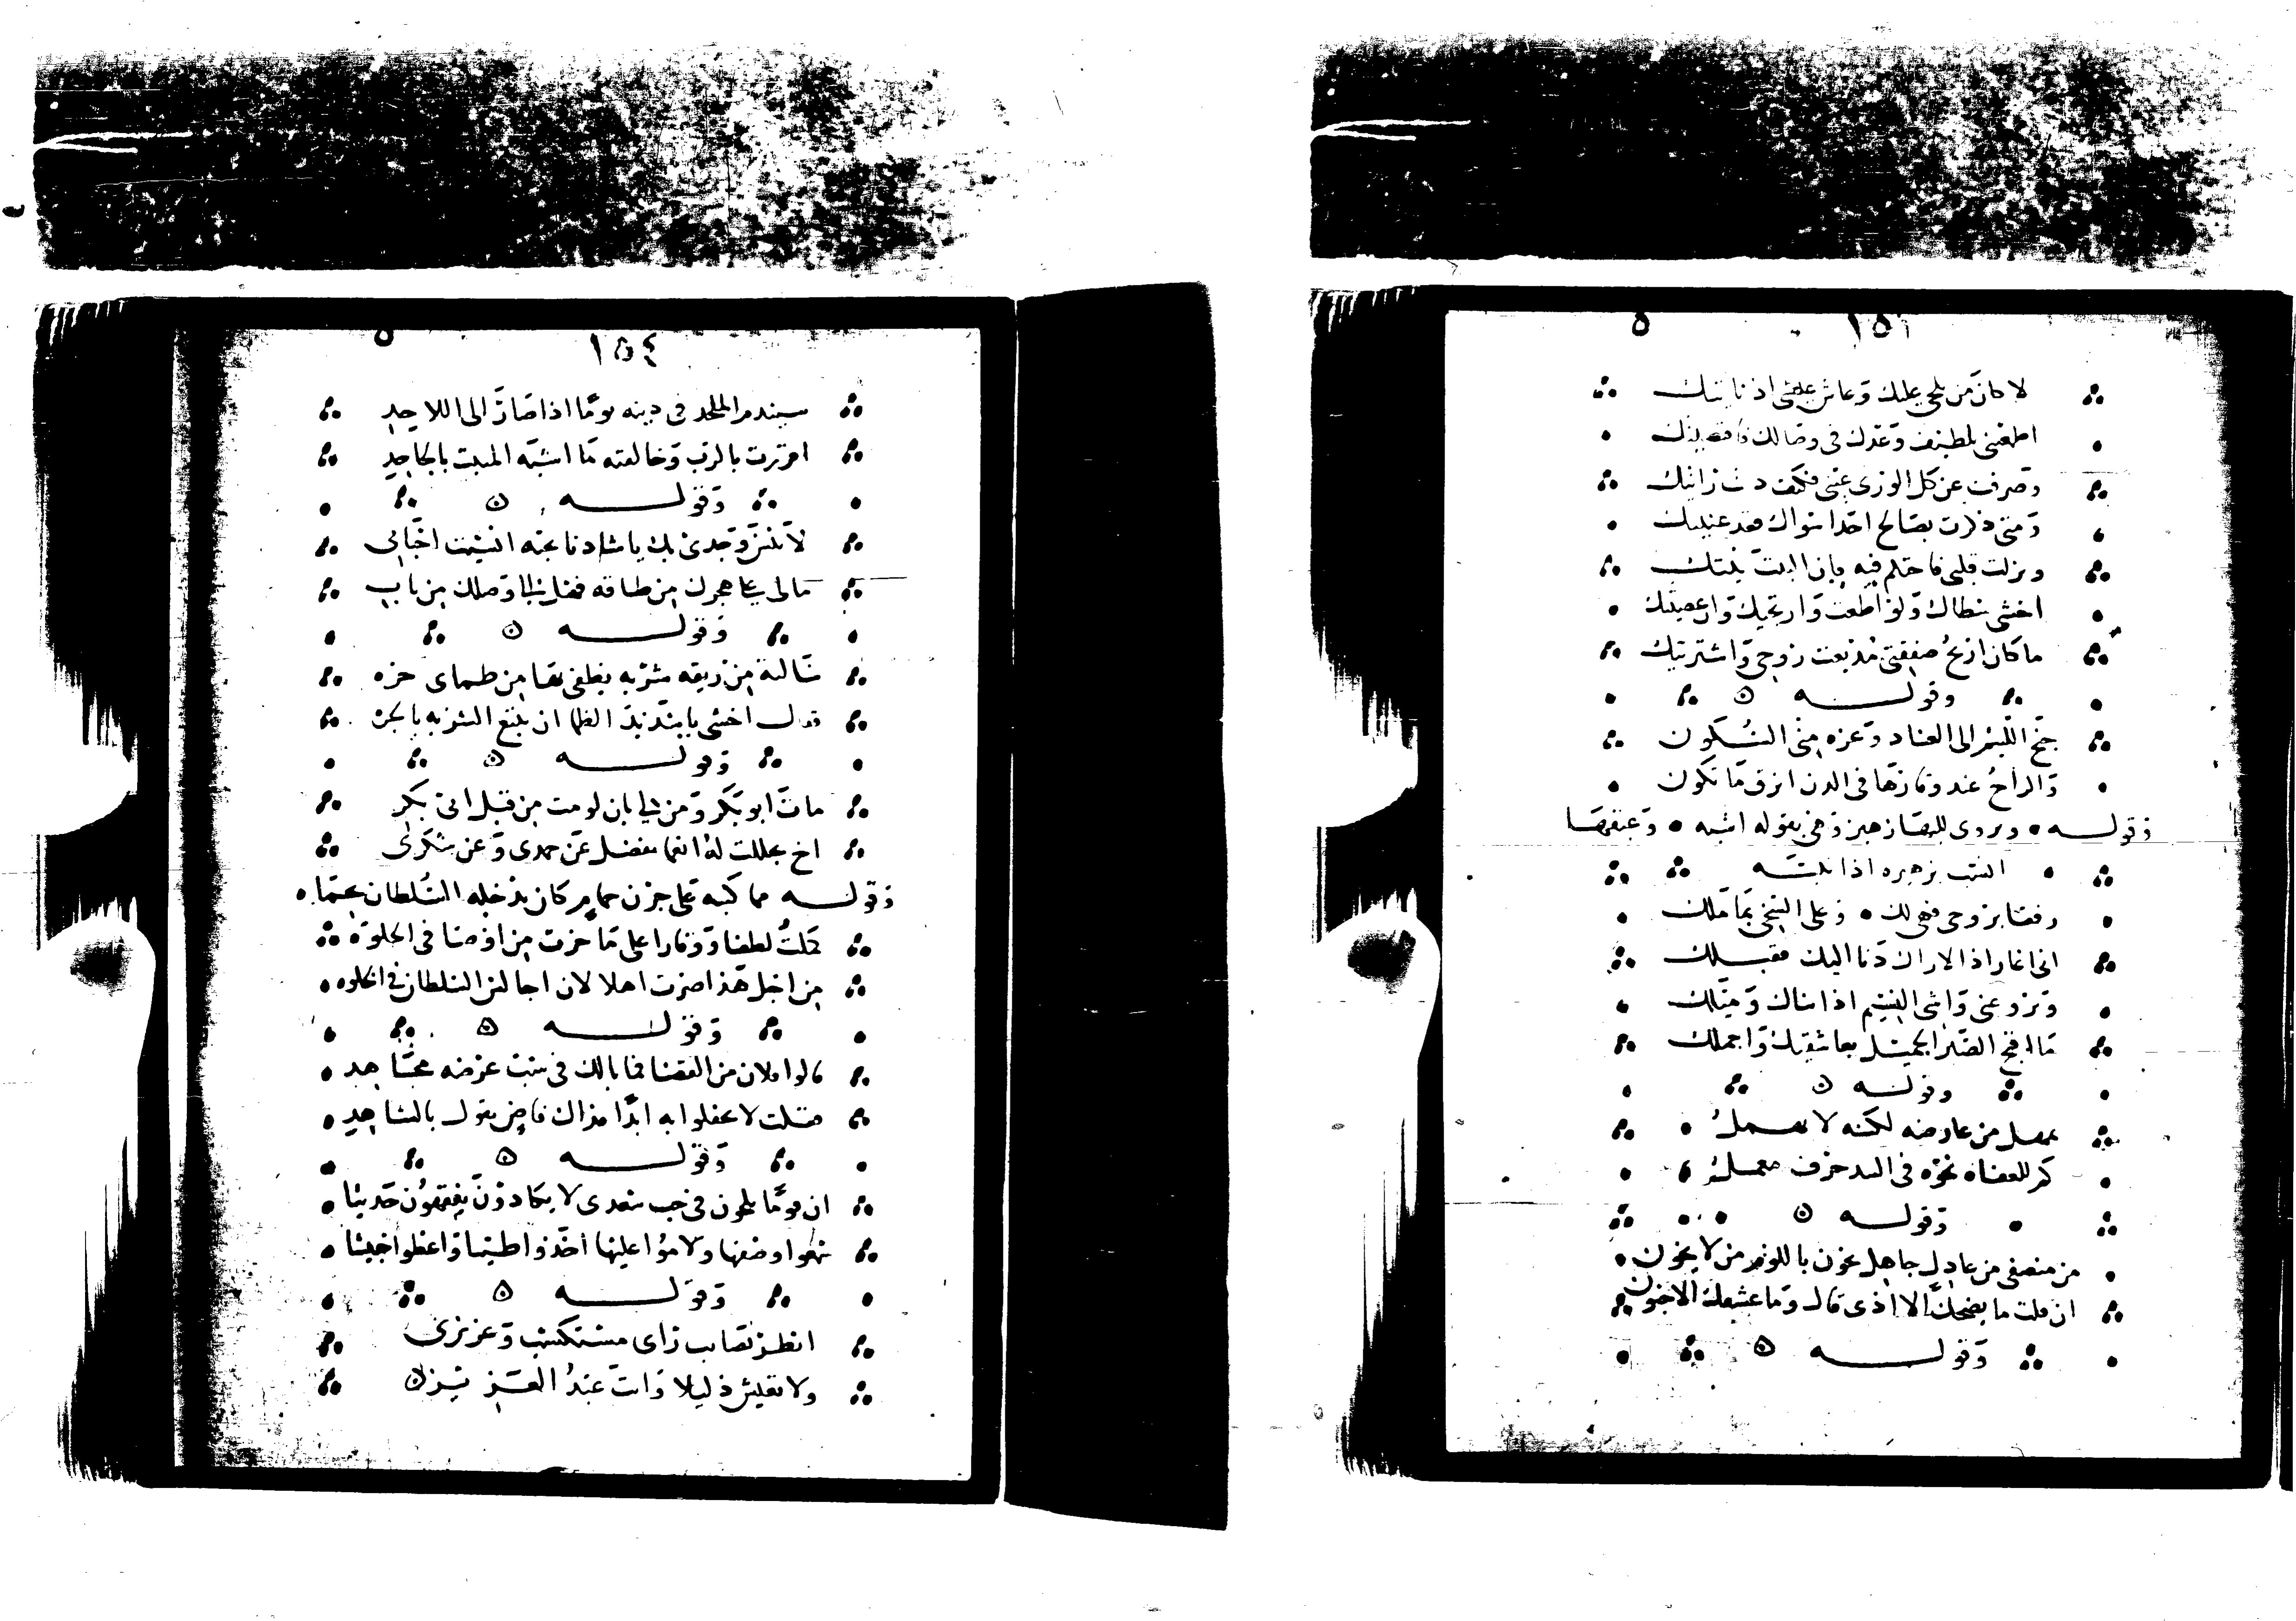 ١٥٦ ٥
لا كان من يلحى عليك وعاش على اذ نايتك
اطمعتنى بلطيف وعدك فى وصالك
وصرفت عن كل الورى عينى فكيف
ومتى ذكرت بصالح احدا سواك فقد عنيتك
ونزلت قلبى فاحتكم فيه فان البيت بيتك
اخشى سطاك ولو اطعت وارتجيك وان عصيتك
ما كان اربح صفقتى مذ بعت روحى واشتريتك
وقوله
جنح الى العناد وغره منى السكون
والراح عند وقارها فى الدن انزق ما تكون
وقوله ويروى للبها زهير وهى بقوله اشبه
اذا
رفقا بروحى فهى لك وعلى بما ملك
انى اغار اذ الاراك دنا اليك فقبلك
عنى واشى النسيم اذا ثناك وميلك
ما اقبح الصبر الجميل بعاشقيك واجملك
وقوله
من عارضه لكنه لا
كم للعفاه نحوه فى اليد حرف
وقوله
من منصفى من عاذل جاهل يخون باللوم من لا يخون
ان قلت ما يضحك الا اذى قال وما عشقك الا جنون
وقوله
١٥٤ ٥
سيندم الملحد فى دينه يوما اذا صار الى اللاحد
اقررت بالرب وخالفته ما اشبه المثبت بالجاحد
وقوله
لا تنس وجدى بك يا شادنا بحبه انسيت احبابى
مالى على هجرك من طاقه فهل الى وصلك من باب
وقوله
سالته من ريقه شربه يطفى بها من ظماى حره
فقال اخشى يا شديد الظما ان يتبع الشربه بالجره
وقوله
مات ابو بكر ومن لى بان لو مت من قبل ابى بكر
اخ تجللت له انعما تفضل عن حمدى وعن شكرى
وقوله مما كتبه على جرن حمام كان يدخله السلطان بحماه
كملت لطفا ووقارا على ما حزت من اوصافى الحلوة
من اجل هذا صرت اهلا لان اجالس السلطان فى الخلوه
وقوله
قالوا فلان من القضا فما بالك فى سبت عرضه مجتاهد
فقلت لا تحفلوا به ابدا فذاك قاض يقول بالشاهد
وقوله
ان قوما يلحون فى حب سعدى لا يكادون يفقهون حديثا
سمعوا وصفها ولاموا عليها اخذوا طيبا واعطوا خبيثا
وقوله
انظر بصايب راى مستكسب وغريزى
ولا تعيش ذليلا وانت عبد العزيز